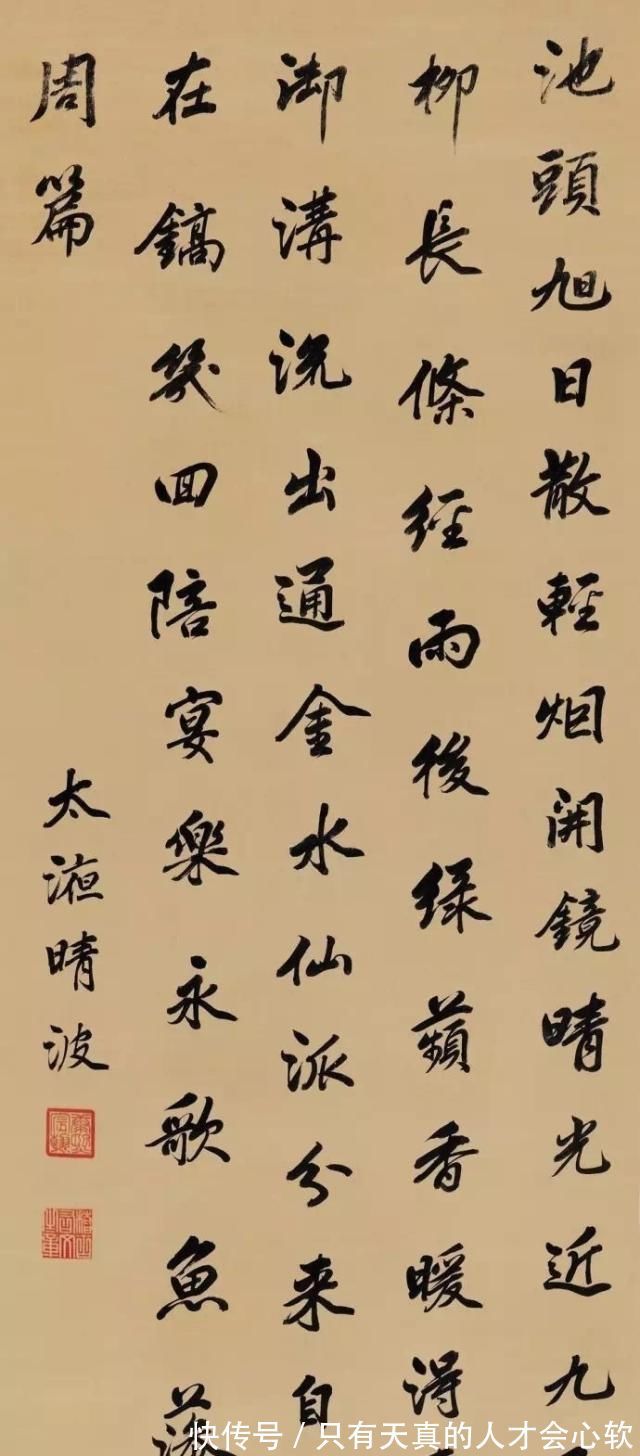 池頭旭日散輕烟開鏡晴光近九
柳長條經雨後緑蘋香暖淂
御溝流出通金水仙派分来自
在鎬幾回陪宴樂永歌魚藻
周篇
太液晴波
快传号 / 只有天真的人才会心软